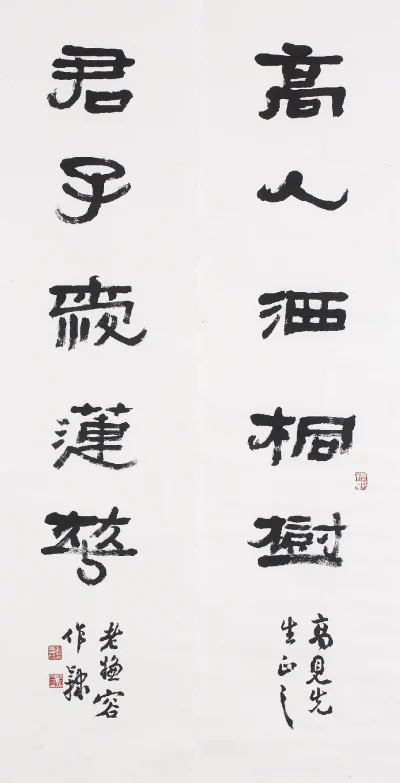 高人洒桐樹
高見先
生正之
君子愛蓮
老容
作隸